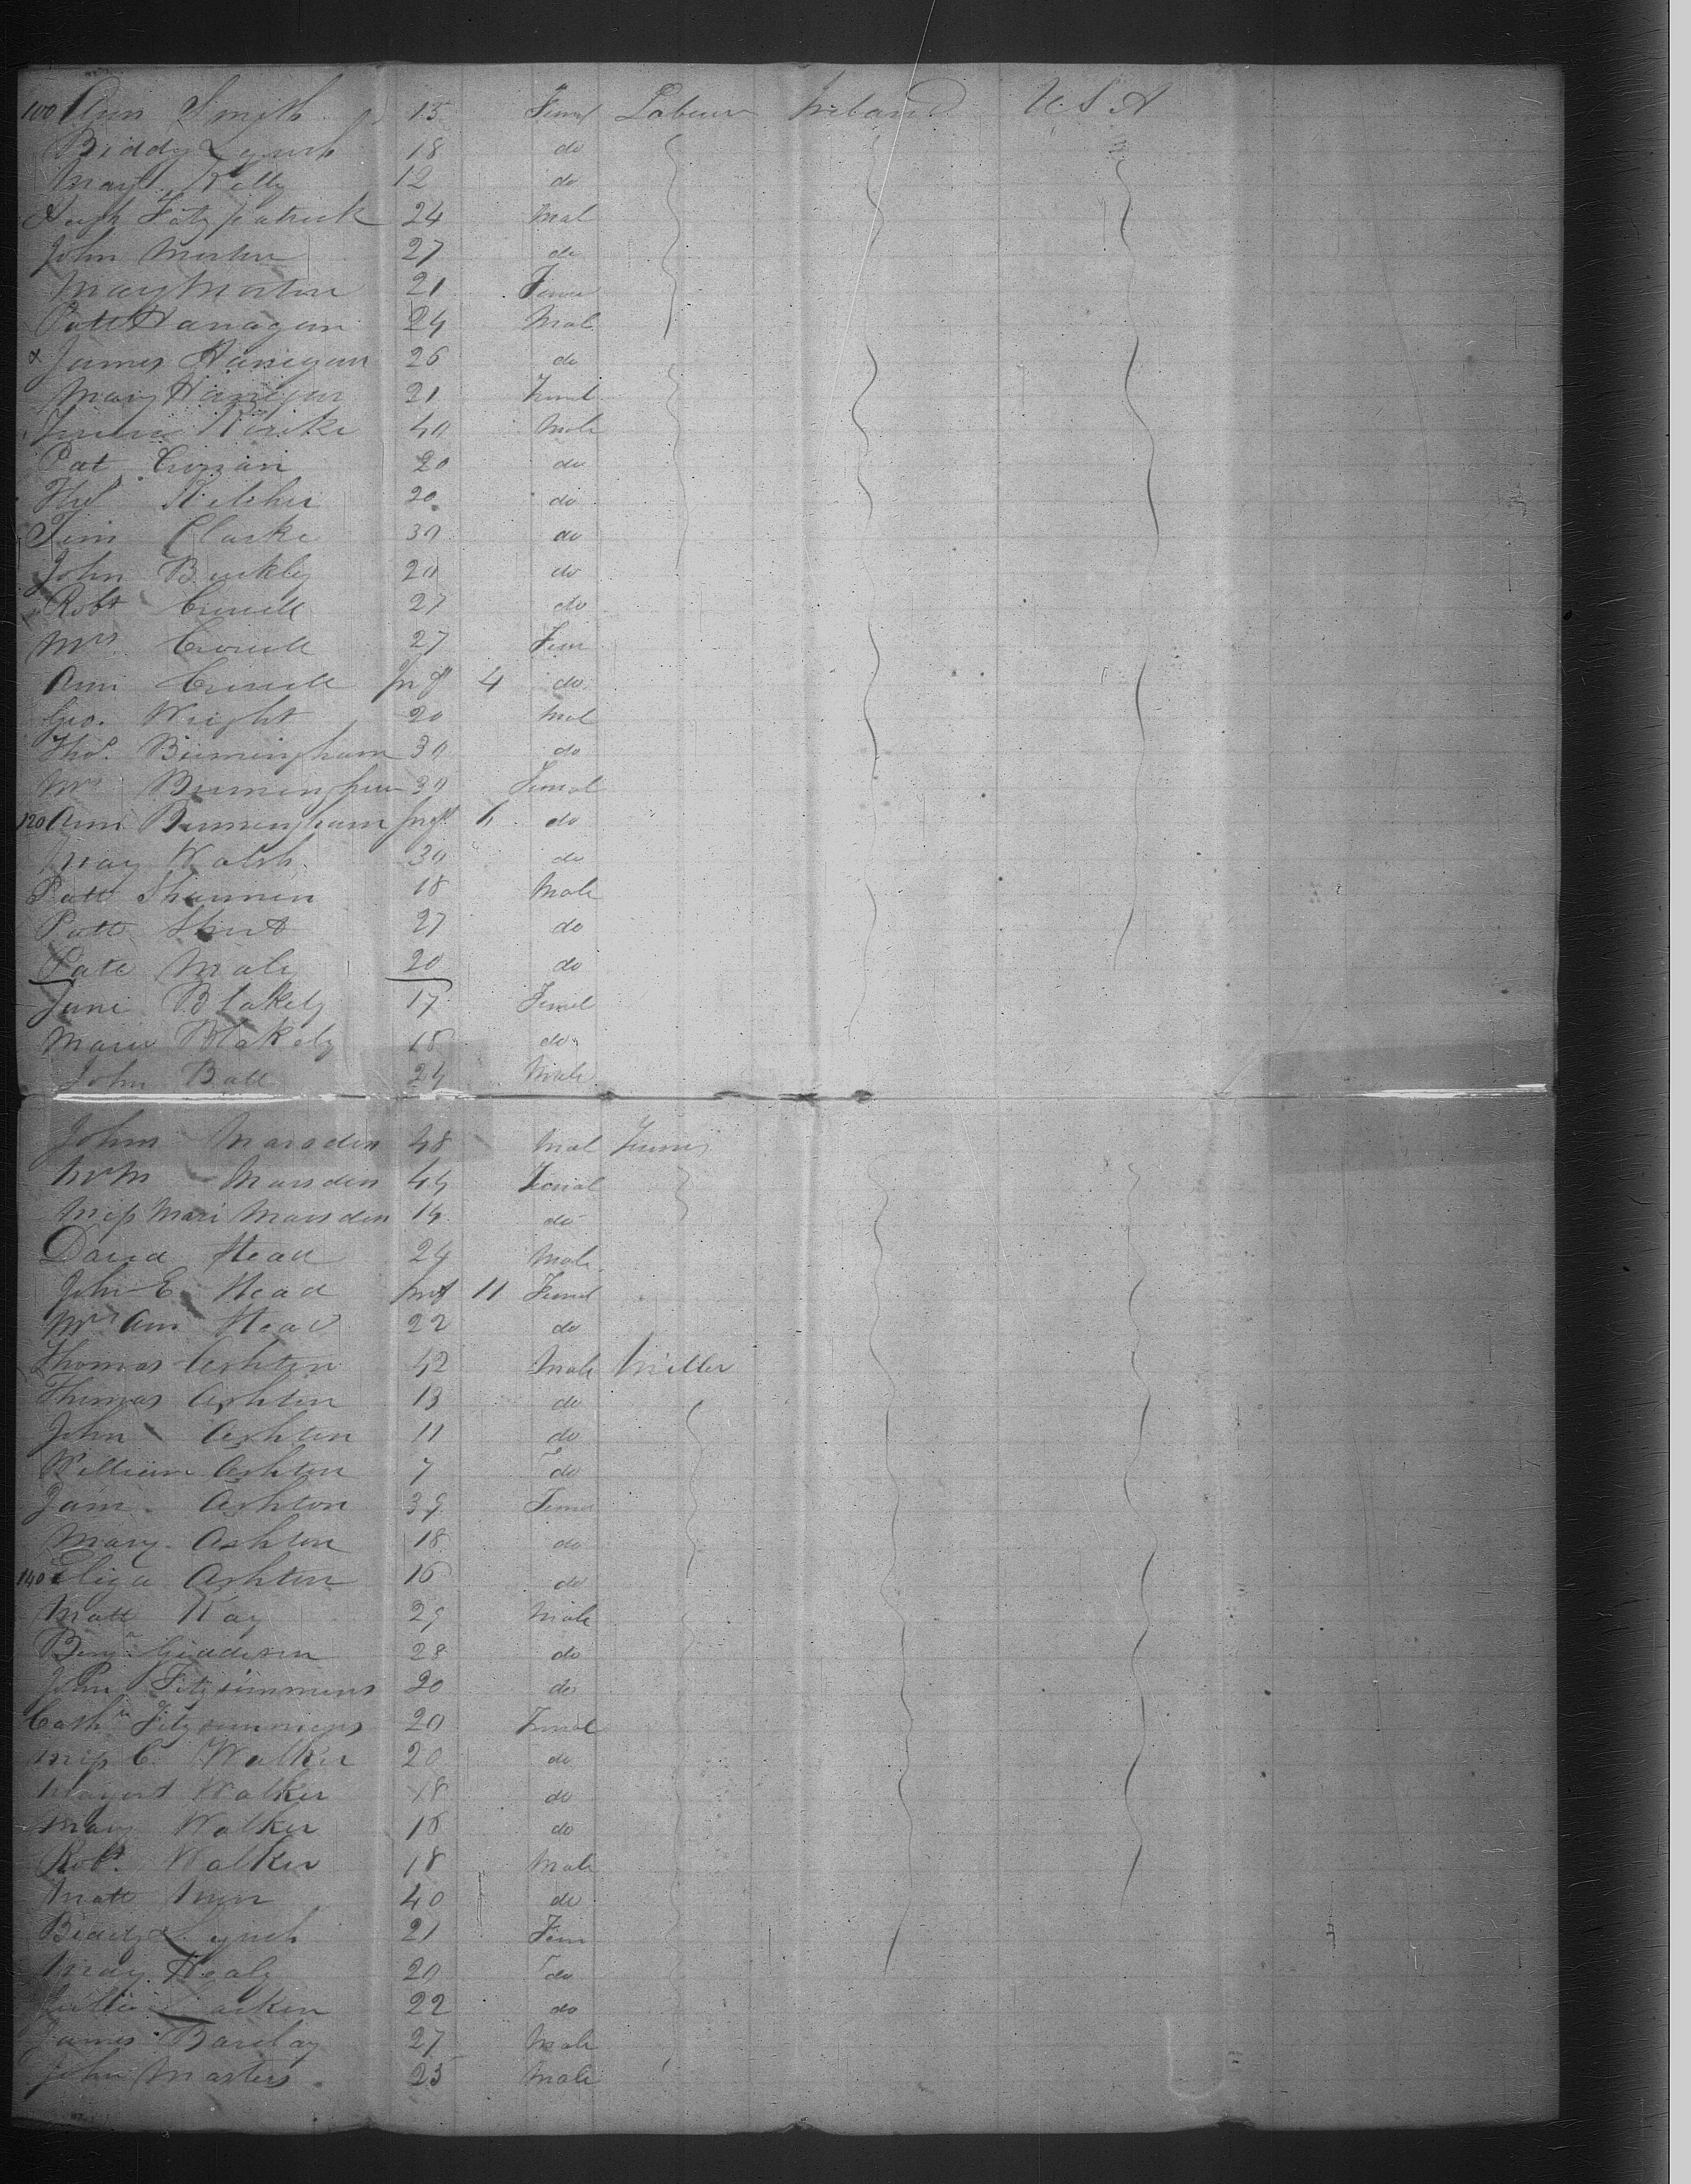 100 Ann Smith 15 Femal Labour Ireland U S A
Biddy Lynch 18 do
Mary Kelly 12 do
Hugh Fitzpatrick 24 Mal
John Morton 27 do
Mary Morton 21 Femal
Patt Hanagan 24 Mal
x James Hanigan 26 do
Mary Hanigan 21 Femal
40 Male
Pat 20 do
Thos Kilcher 20 do
Tim Clarke 30 do
John Buckley 20 do
Robt 27 do
Mrs 27 Fem
Ann inft 4 do
Geo. Wright 20 Mal
Thos. Birmingham 30 do
Mrs Birmingham 30 Femal
120 Ann Birmingham inft 6 do
Mary Walsh 30 do
Patt Shannon 18 Male
Patt 27 do
Patt Maly 20 do
Jane Blakely 17 Femal
Blakely 18 do
John Ball 24 Male
John Marsden 48 Mal
Marsden 44 Femal
Miss Mari Marsden 14 do
David Head 24 Male
John E. Head inft 11 Femal
Mrs Ann Head 22 do
Thomas Ashton 42 Male Miller
Thomas Ashton 13 do
John Ashton 11 do
William Ashton 7 do
Jane Ashton 39 Femal
Mary Ashton 18 do
140 Eliza Ashton 16 do
Matt Kay 29 Male
Benjn 28 do
John Fitzsimmons 20 do
Cathn Fitzsimmons 20 Femal
Miss C. Walker 20 do
Margert Walker 18 do
Mary Walker 18 do
Robt. Walker 18 Male
Matt 40 do
Biddy Lynch 21 Fem
Mary Healy 20 do
Larken 22 do
James Barclay 27 Male
John Masters 25 Male